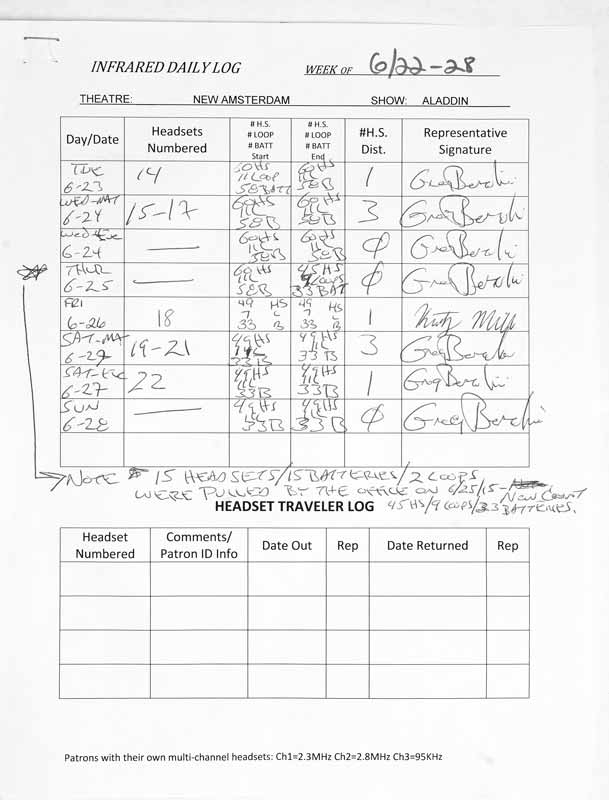 INFRARED DAILY LOG WEEK OF 6/22-28
THEATRE: NEW AMSTERDAM SHOW: ALADDIN
Day/Date Headsets Numbered # H.S. # LOOP # BATT Start # H.S. # LOOP # BATT End #H.S. Dist. Representative Signature
TUE 6-23 14 60HS 11LOOP 58BATT 60HS 11L 58B 1 Greg
WED-MAT 6-24 15-17 60HS 11L 58B 60HS 11L 58B 3 Greg
Wed Eve 6-24 — 60HS 11L 58B 60HS 11L 58B 0 Greg
THUR 6-25 — 60HS 11L 58B 45HS 9 Loops 33 BAT 0 Greg
FRI 6-26 18 49 HS 7 L 33 B 49 HS 7 L 33 B 1
SAT-MAT 6-27 19-21 49HS 11L 33B 49HS 11L 33B 3 Greg
SAT-EVE 6-27 22 49HS 11L 33B 49HS 11L 33B 1 Greg
SUN 6-28 — 49HS 11L 33B 49HS 11L 33B 0 Greg
NOTE 15 HEADSETS/15 BATTERIES/2 LOOPS
WERE PULLED BY THE OFFICE ON 6/25/15- New Count
45 HS/9 LOOPS/33 BATTERIES.
HEADSET TRAVELER LOG
Headset Numbered Comments/ Patron ID Info Date Out Rep Date Returned Rep
Patrons with their own multi-channel headsets: Ch1=2.3MHz Ch2=2.8MHz Ch3=95KHz